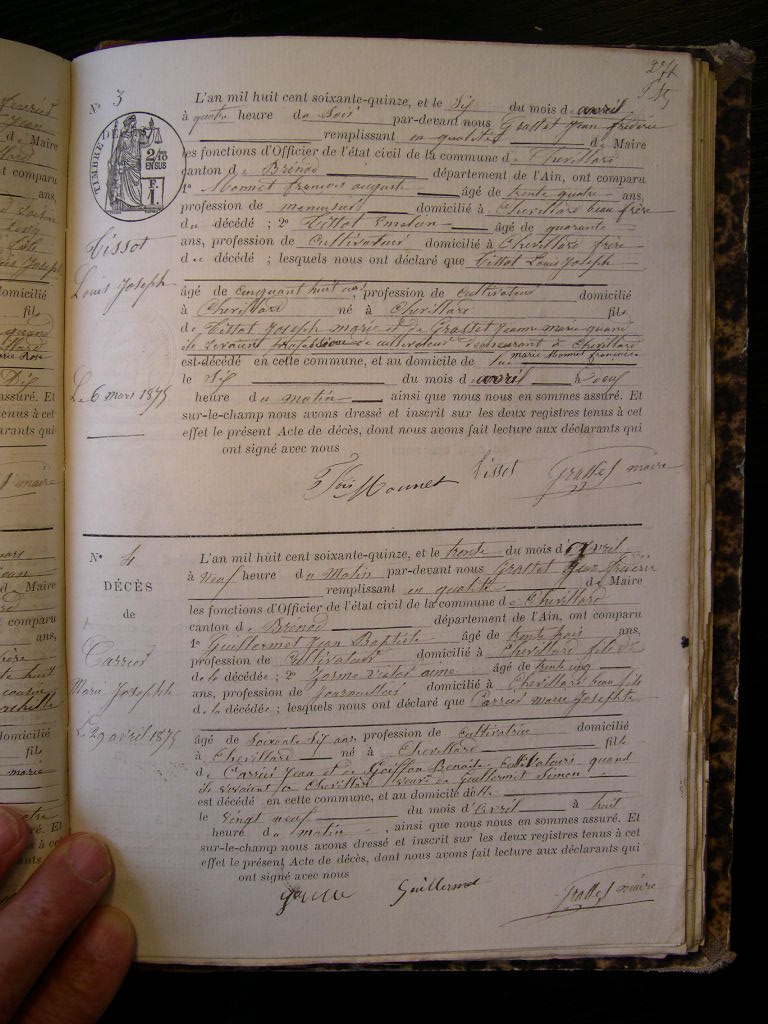 274
N° 3
L'an mil huit cent soixante-quinze, et le Six du mois d'avril
à quatre heure du Soir par-devant nous Grasset Jean frédéric
remplissant en qualité de Maire
les fonctions d'Officier de l'état civil de la commune de Chevillard
canton de Brénod département de l'Ain, ont comparu
1° Monnet françois auguste âgé de trente quatre ans,
profession de domicilié à Chevillard beau frère
du décédé ; 2° Tissot âgé de quarante
ans, profession de Cultivateur domicilié à Chevillard frère
du décédé ; lesquels nous ont déclaré que Tissot Louis Joseph
âgé de cinquant huit ans profession de cultivateur domicilié
à Chevillard né à Chevillard fils
de Tissot Joseph marie et de Grasset Jeanne marie quand
ils vivaient profession de cultivateur demeurant à Chevillard
est décédé en cette commune, et au domicile de marie Monnet françoise
le Six du mois d'avril à neuf
heure du matin ainsi que nous nous en sommes assuré. Et
sur-le-champ nous avons dressé et inscrit sur les deux registres tenus à cet
effet le présent Acte de décès, dont nous avons fait lecture aux déclarants qui
ont signé avec nous
TIMBRE DE
2/10
EN SUS
F.
1.
Tissot
Louis Joseph
Le 6 mars 1875
fois Monnet Tissot Grasset maire
N° 4
DÉCÈS
de
Carrier
Marie Josephte
Le 29 avril 1875
L'an mil huit cent soixante-quinze, et le trente du mois d'Avril
à Neuf heure du Matin par-devant nous Grasset Jean frédéric
remplissant en qualité de Maire
les fonctions d'Officier de l'état civil de la commune de Chevillard
canton de Brénod département de l'Ain, ont comparu
1° Guillermet Jean Baptiste âgé de trente trois ans,
profession de Cultivateur domicilié à Chevillard fils
de la décédée ; 2° victor aimé âgé de trente cinq
ans, profession de domicilié à Chevillard beau fils
de la décédée ; lesquels nous ont déclaré que Carrier marie Josephte
âgé de Soixante Six ans profession de cultivatrice domicilié
à Chevillard né à Chevillard fille
de Carrier Jean et de Goiffon Benoite Cultivateurs quand
ils vivaient à Chevillard veuve de Guillermet Simon
est décédé en cette commune, et au domicile de
le Vingt neuf du mois d'Avril à huit
heure du matin, ainsi que nous nous en sommes assuré. Et
sur-le-champ nous avons dressé et inscrit sur les deux registres tenus à cet
effet le présent Acte de décès, dont nous avons fait lecture aux déclarants qui
ont signé avec nous
Guillermet Grasset maire